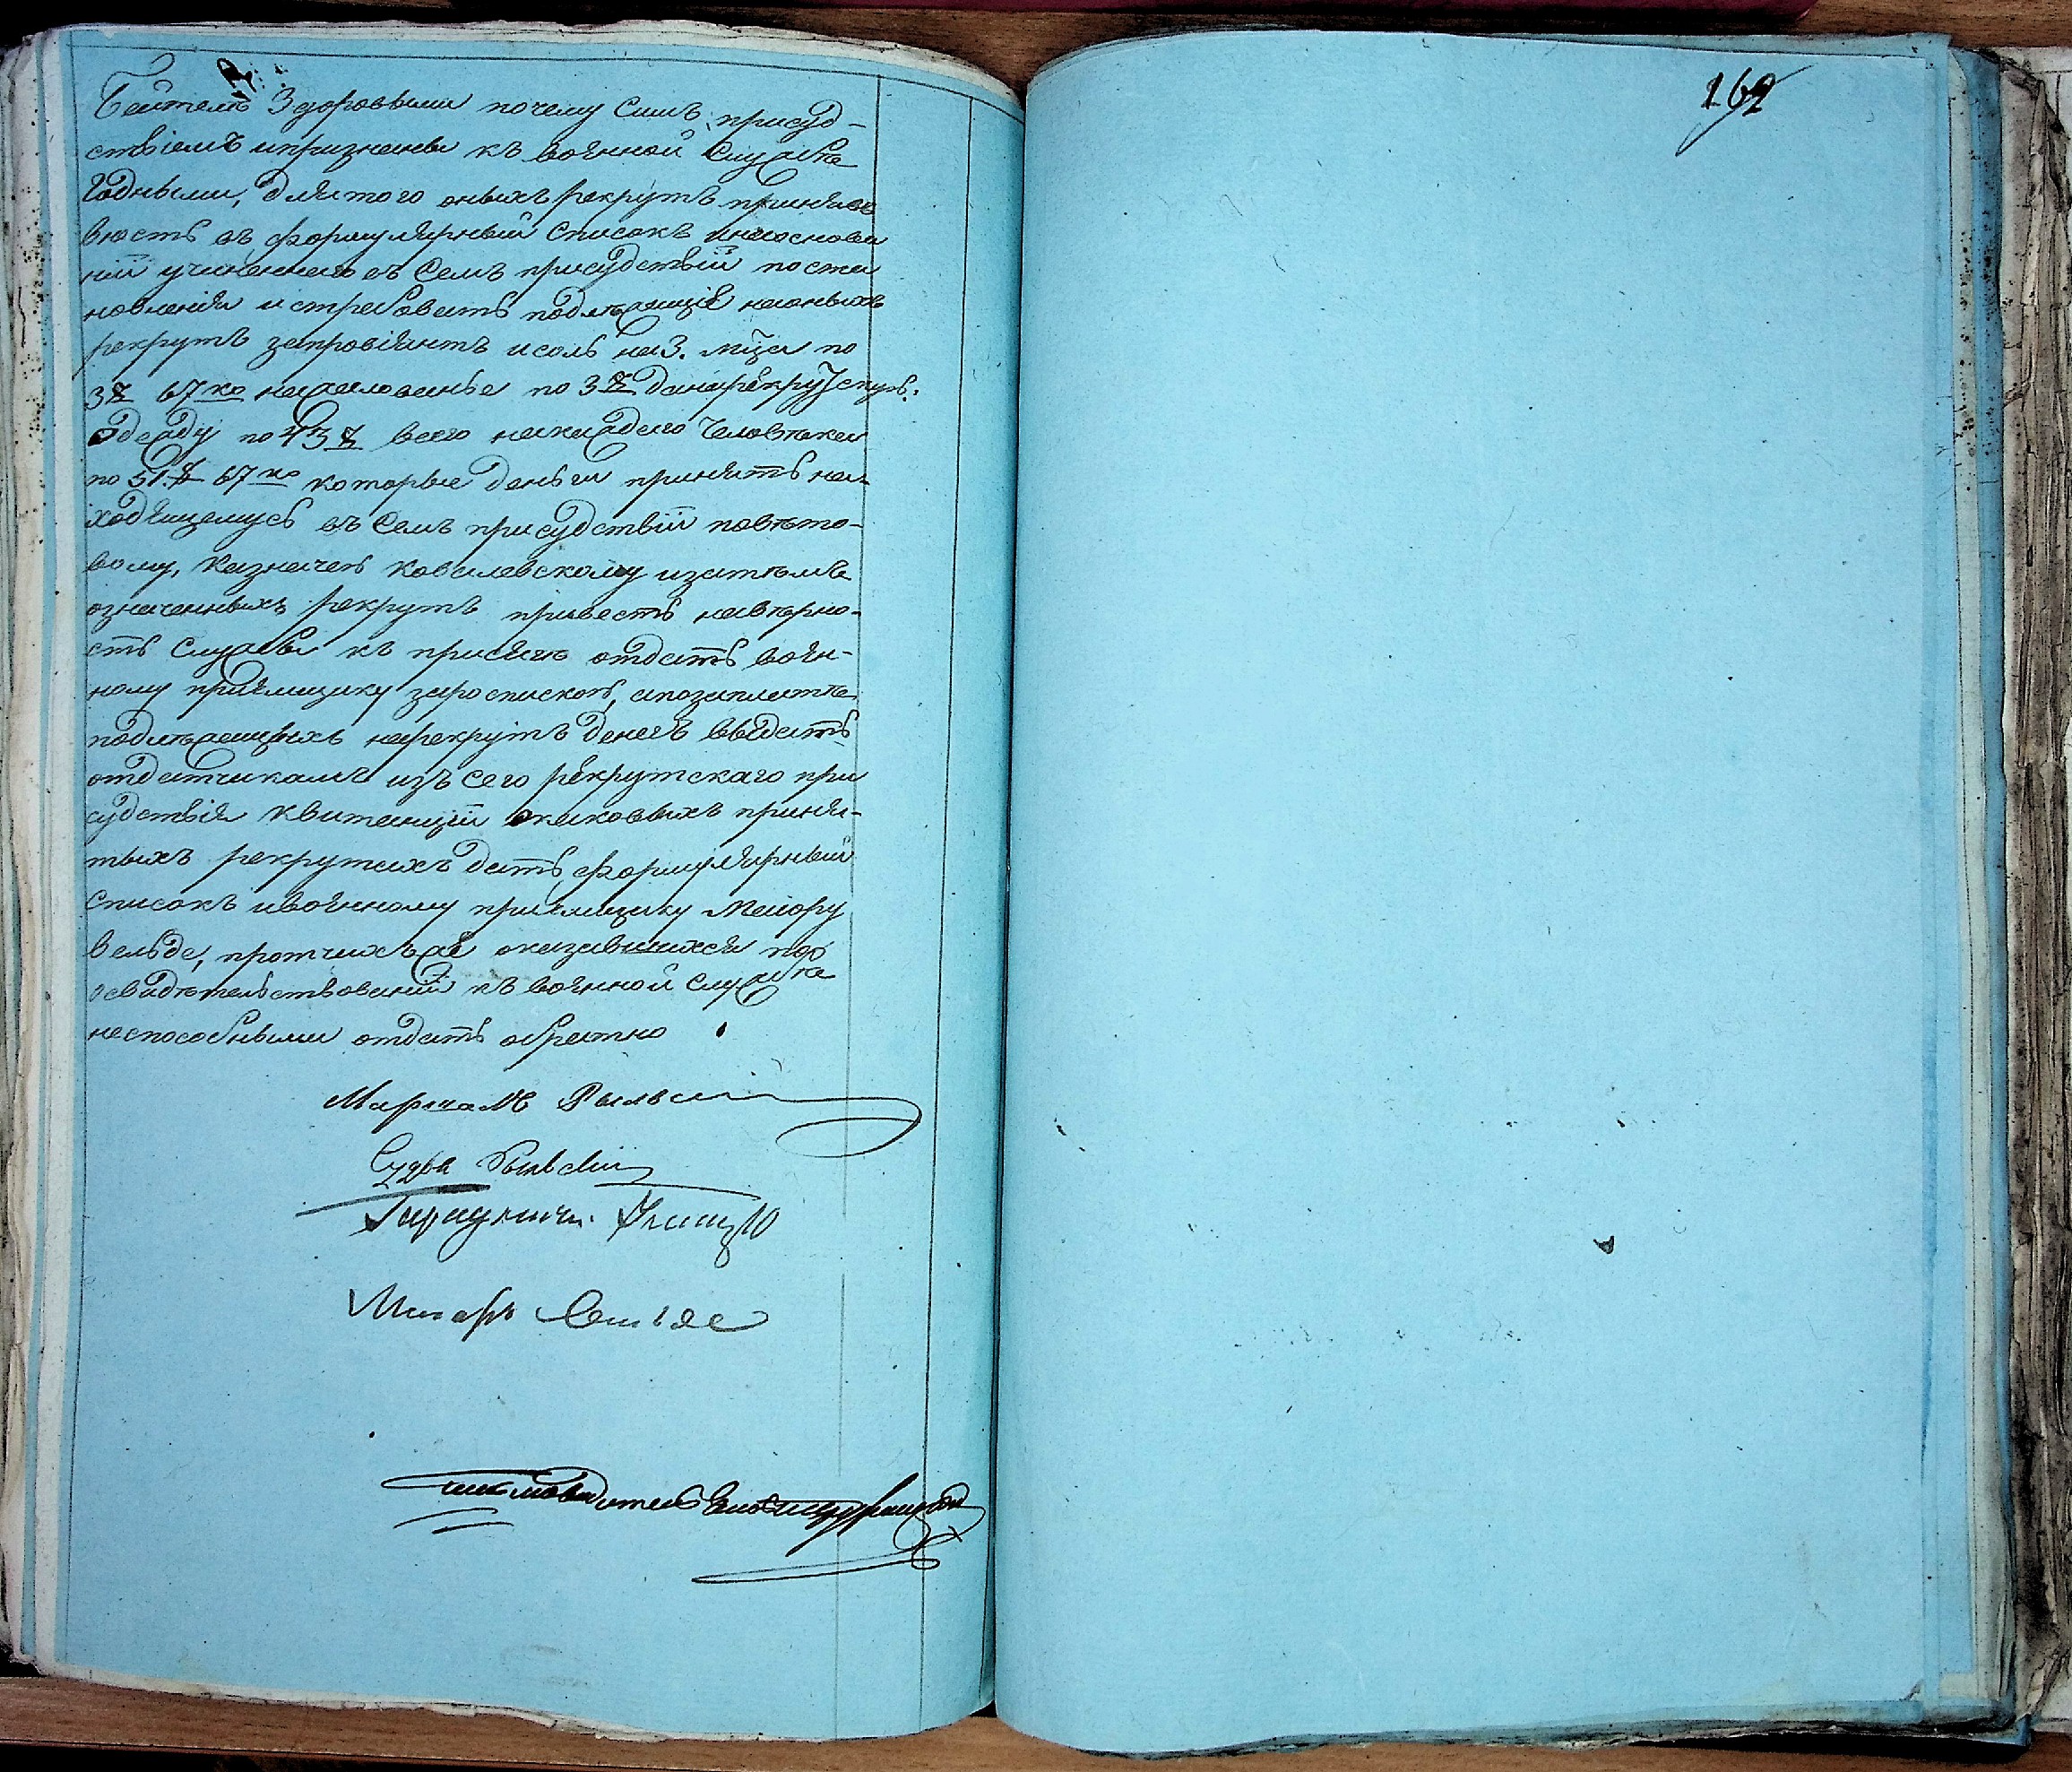 162
здоровыми почему симъ присуд-
ствіемъ и признаны къ военной службе
годными, для того оныхъ рекрутъ принявъ
внесть въ формулярный списокъ и на основа
ніи учиненнаго въ семъ присудствіи поста
новленія истребовать подлежащіе на оныхъ
рекрутъ за провіянтъ и соль на 3. мца по
3 67 ко на жалованье по 3 рекру
одежду по 43 всего на каждаго человека
по 51. 67 ко которые деньги принять на-
ходящемусь въ семъ присудствіи повето-
вому, казначею Ковалевскому и затемъ
означенныхъ рекрутъ привесть на верно-
сть службы къ присяге отдать воен-
ному приемщику за роспискою, а по заплате
подлежащихъ на рекрутъ денегъ выдать
отдатчикамъ изъ сего рекрутскаго при
судствія квитанціи о каковыхъ приня-
тыхъ рекрутахъ дать формулярный
списокъ и военному приемщику Маіору
Вельде, протчихъ же оказавшихся по
освидетельствованіи къ военной службе
неспособными отдать обратно
Маршалъ Рыльскій
Судья Рыльскій
Маіоръ Вельде